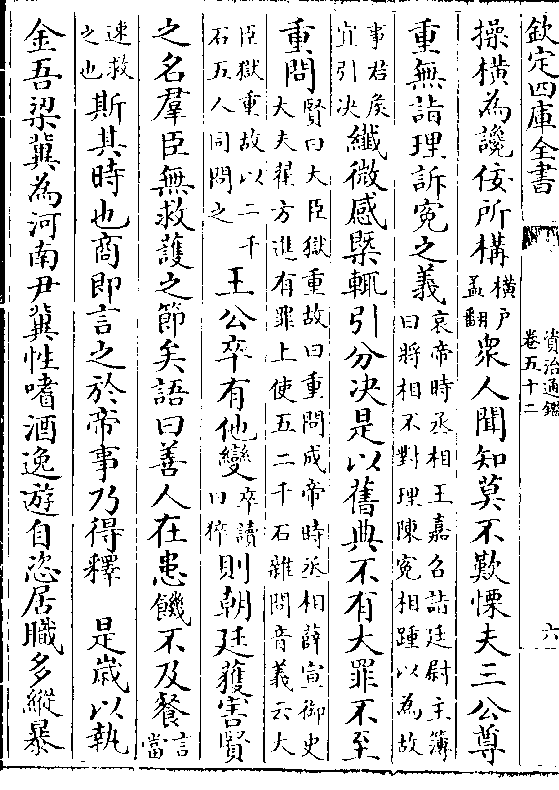 欽定四庫全書
資治通鑑
卷五十二
六
操橫為讒佞所構橫户孟翻衆人聞知莫不歎慄夫三公尊
重無詣理訴寃之義哀帝時丞相王嘉召詣廷尉主簿曰將相不對理陳寃相踵以為故
事君矦宜引决纎微感槩輒引分决是以舊典不有大罪不至
重問賢曰大臣獄重故曰重問成帝時丞相薛宣御史大夫翟方進有罪上使五二千石雜問音義云大
臣獄重故以二千石五人同問之王公卒有他變卒讀曰猝則朝廷獲害賢
之名羣臣無救護之節矣語曰善人在患饑不及餐言當
速救之也斯其時也商即言之於帝事乃得釋 是歲以執
金吾梁冀為河南尹冀性嗜酒逸遊自恣居職多縱暴